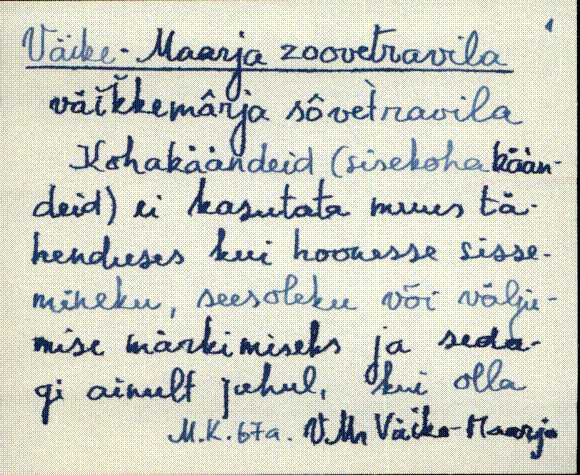 Väike-Maarja zoovetravila
väikkemârja sôvètravila
Kohakäändeid (sisekohakään-
deid) ei kasutata muus tä-
henduses kui hoonesse sisse-
mineku, seesoleku või välju-
mise märkimiseks ja seda-
gi ainult juhul, kui olla
M.K. 67a. VMr Väike-Maarja